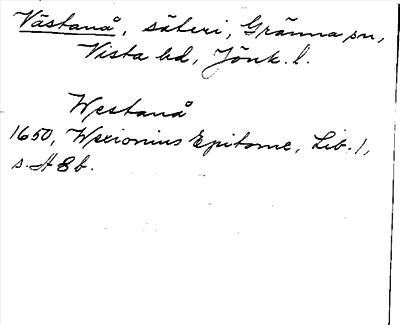 Västanå, säteri, Gränna sn,
Vista hd, Jönk. l.
Westanå
1650, Wexionius Epitome, Lib. 1,
s. A 8 b.